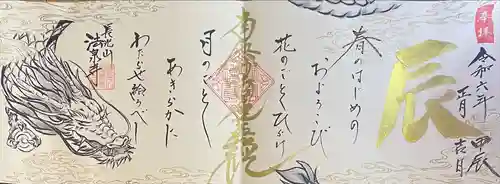 奉拝
令和六年
正月
甲辰
吉日
辰
春のはじめの
およろこび
花のごとくひらけ
南無妙法蓮華経
月のごとく
あきらかに
わたらせ給うべし
長光山
法泉寺